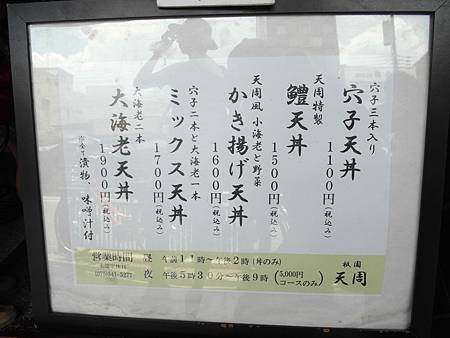 穴子三本入り
穴子天丼
1100円(税込み)
天周特製
鱧天丼
1500円(税込み)
天周風 小海老と野菜
かき揚げ天丼
1600円(税込み)
穴子二本と大海老一本
ミックス天丼
1700円(税込み)
大海老二本
大海老天丼
1900円(税込み)
漬物、味噌汁付
営業時間 昼 午前11時〜午後2時(丼のみ)
夜 午後5時30分〜午後9時(5,000円コースのみ)
(075)541-5277
祇園
天周